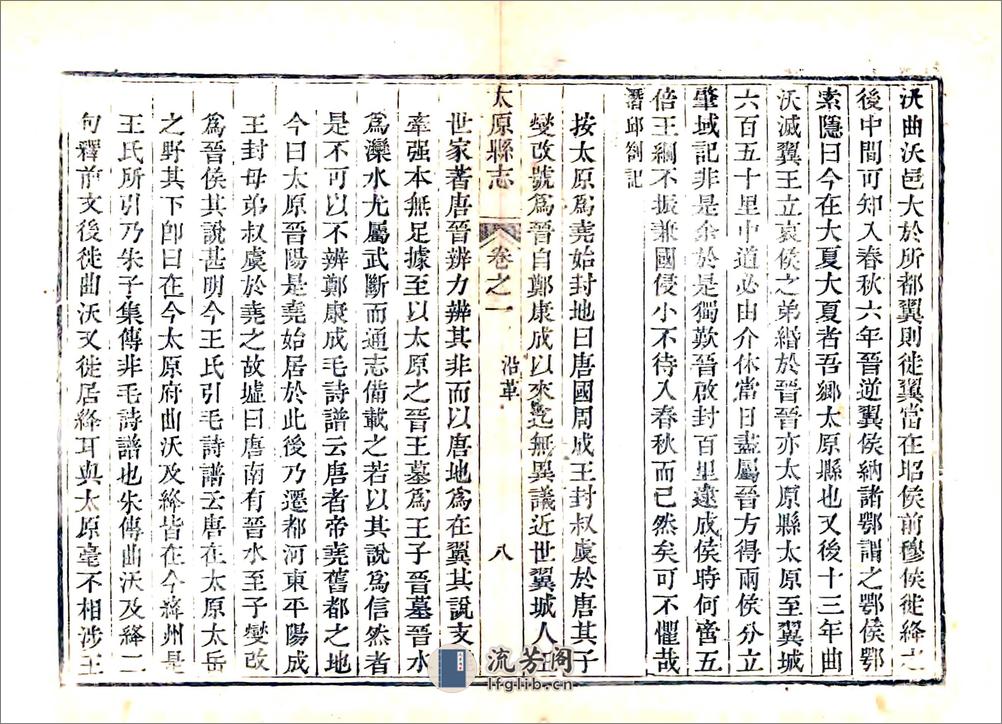 沃曲沃邑大於所都翼則徙翼當在昭侯前穆侯徙絳之
後中間可知入春秋六年晉逆翼侯納諸鄂謂之鄂侯鄂
索隱曰今在大夏大夏者吾鄉太原縣也又後十三年曲
沃滅翼王立哀侯之弟緡於晉晉亦太原縣太原至翼城
六百五十里中道必由介休當日盡屬晉方得兩侯分立
肇域記非是余於是獨歎晉啟封百里遠成侯時何啻五
倍王綱不振兼國侵小不待入春秋而已然矣可不懼哉
潛邱劄記
按太原為堯始封地曰唐國周成王封叔虞於唐其子
燮改號為晉自鄭康成以來迄無異議近世翼城人王
太原縣志
卷之一
沿革
八
世家著唐晉辨力辨其非而以唐地為在翼其說支
牽强本無足據至以太原之晉王墓為王子晉墓晉水
為灤水尤屬武斷而通志備載之若以其說為信然者
是不可以不辨鄭康成毛詩譜云唐者帝堯舊都之地
今曰太原晉陽是堯始居於此後乃遷都河東平陽成
王封母弟叔虞於堯之故墟曰唐南有晉水至子燮改
為晉侯其說甚明今王氏引毛詩譜云唐在太原太岳
之野其下卽曰在今太原府曲沃及絳皆在今絳州是
王氏所引乃朱子集傳非毛詩譜也朱傳曲沃及絳二
句釋前文後徙曲沃又徙居絳耳與太原毫不相涉王
流芳閣
lfglib.cn